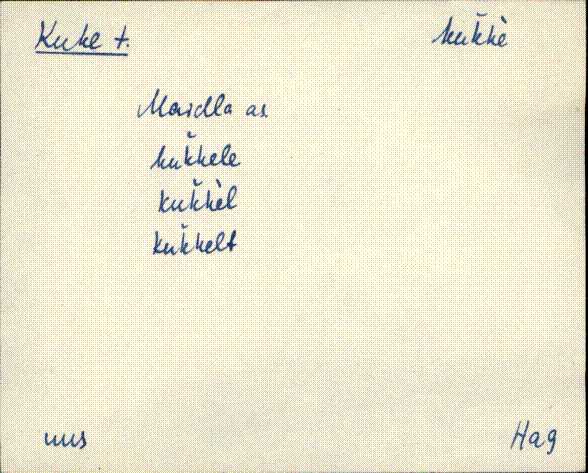 Kuke t. kuk̆kè
Maidla as.
kuk̆kele
kuk̆kèl
kuk̆kelt
uus Hag